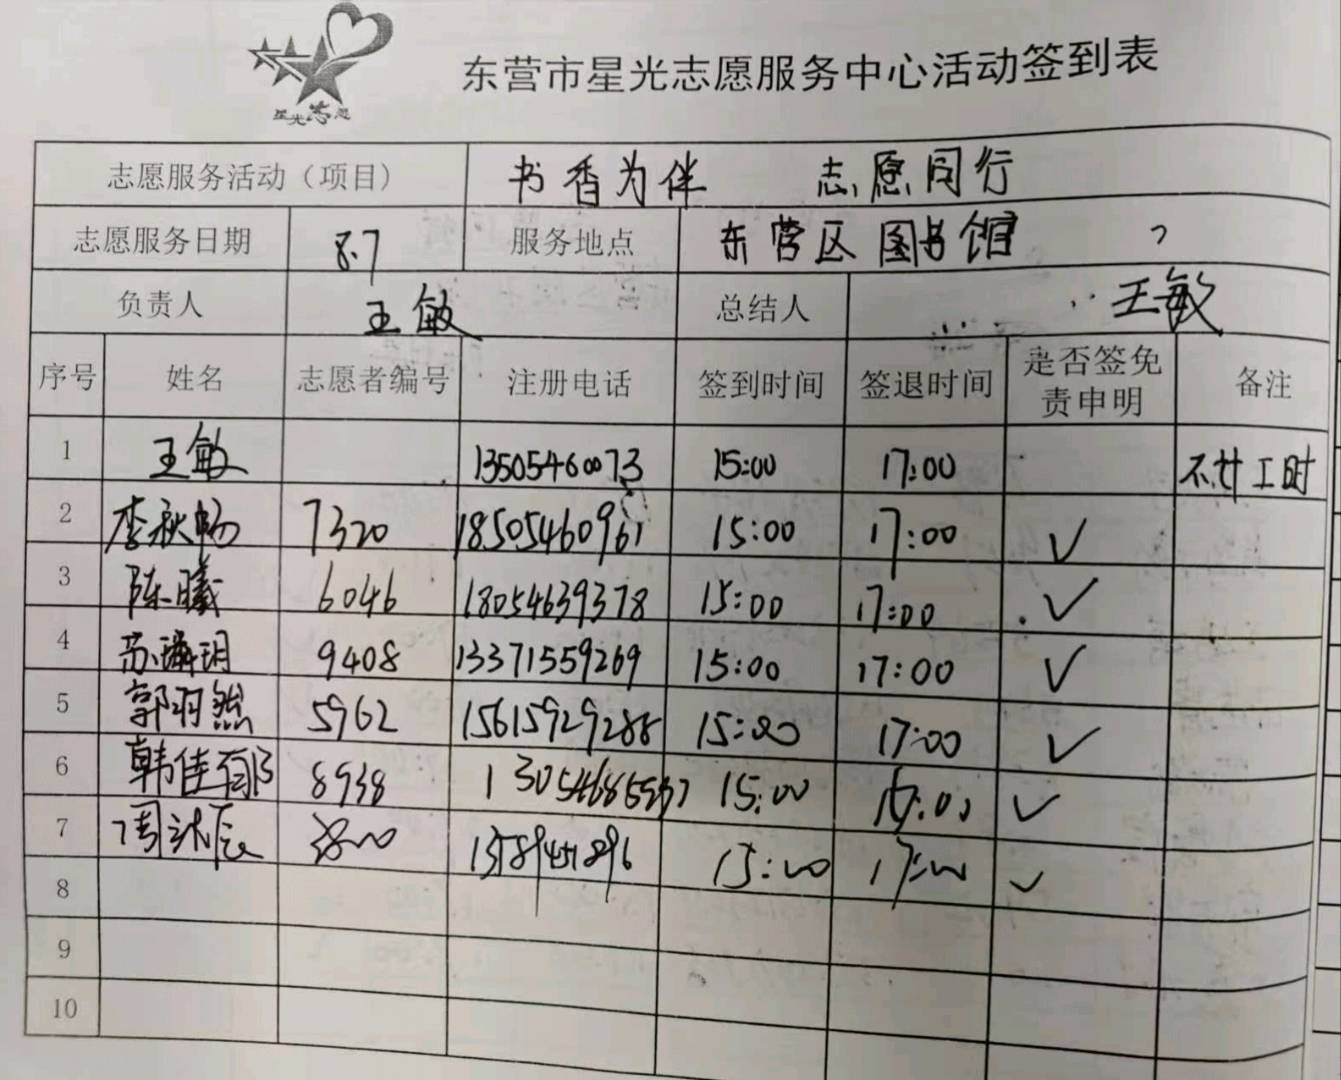 星光志愿
东营市星光志愿服务中心活动签到表
志愿服务活动（项目） 书香为伴 志愿同行
志愿服务日期 8.7 服务地点 东营区图书馆
负责人 王敏 总结人 王敏
序号 姓名 志愿者编号 注册电话 签到时间 签退时间 是否签免责申明 备注
1 王敏 13505460073 15:00 17:00 不计工时
2 李秋畅 7320 18505460961 15:00 17:00 ✓
3 陈曦 6046 18054639378 15:00 17:00 ✓
4 苏瑞玥 9408 13371559269 15:00 17:00 ✓
5 郭羽然 5962 15615929288 15:00 17:00 ✓
6 韩佳郁 8938 15:00 17:00 ✓
7 周沐辰 15:00 17:00 ✓
8
9
10